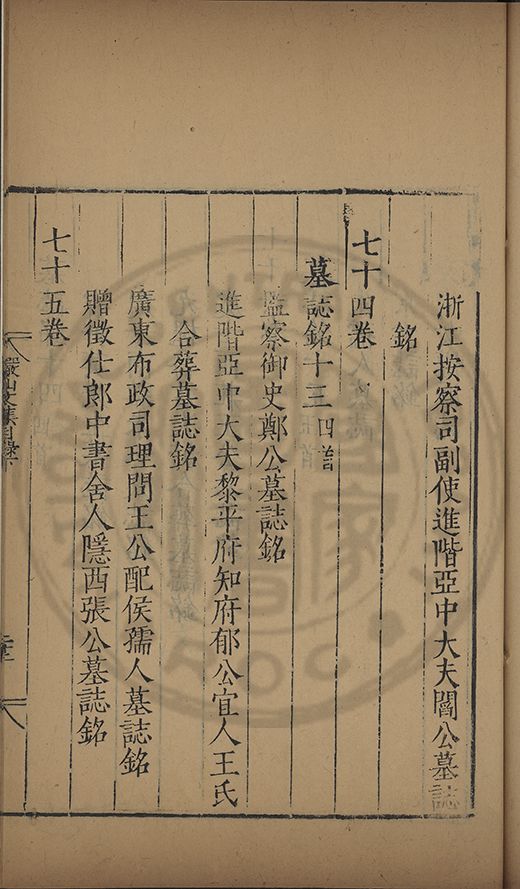 浙江按察司副使進階亞中大夫閻公墓誌
銘
七十四卷
墓誌銘十三 四首
監察御史鄭公墓誌銘
進階亞中大夫黎平府知府郁公宜人王氏
合葬墓誌銘
廣東布政司理問王公配侯孺人墓誌銘
贈徵仕郎中書舍人隱西張公墓誌銘
七十五卷
儼山文集目錄下